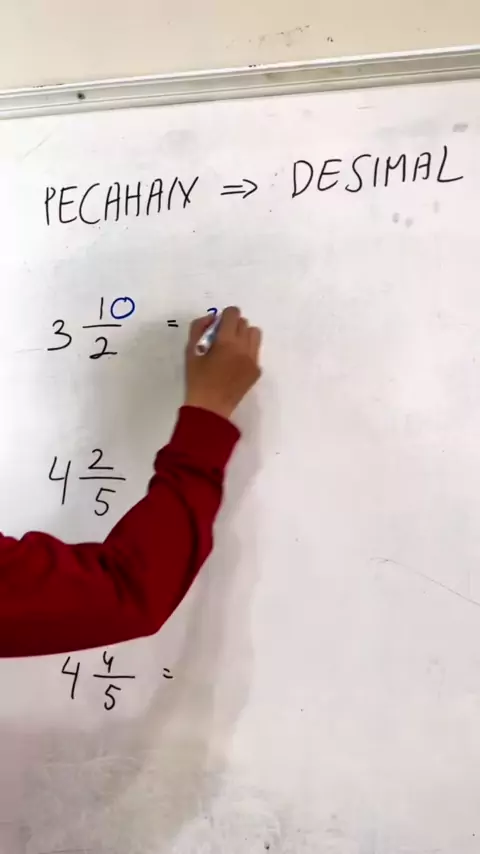 PECAHAN ⇒ DESIMAL
3 10/2 =
4 2/5
4 4/5 =